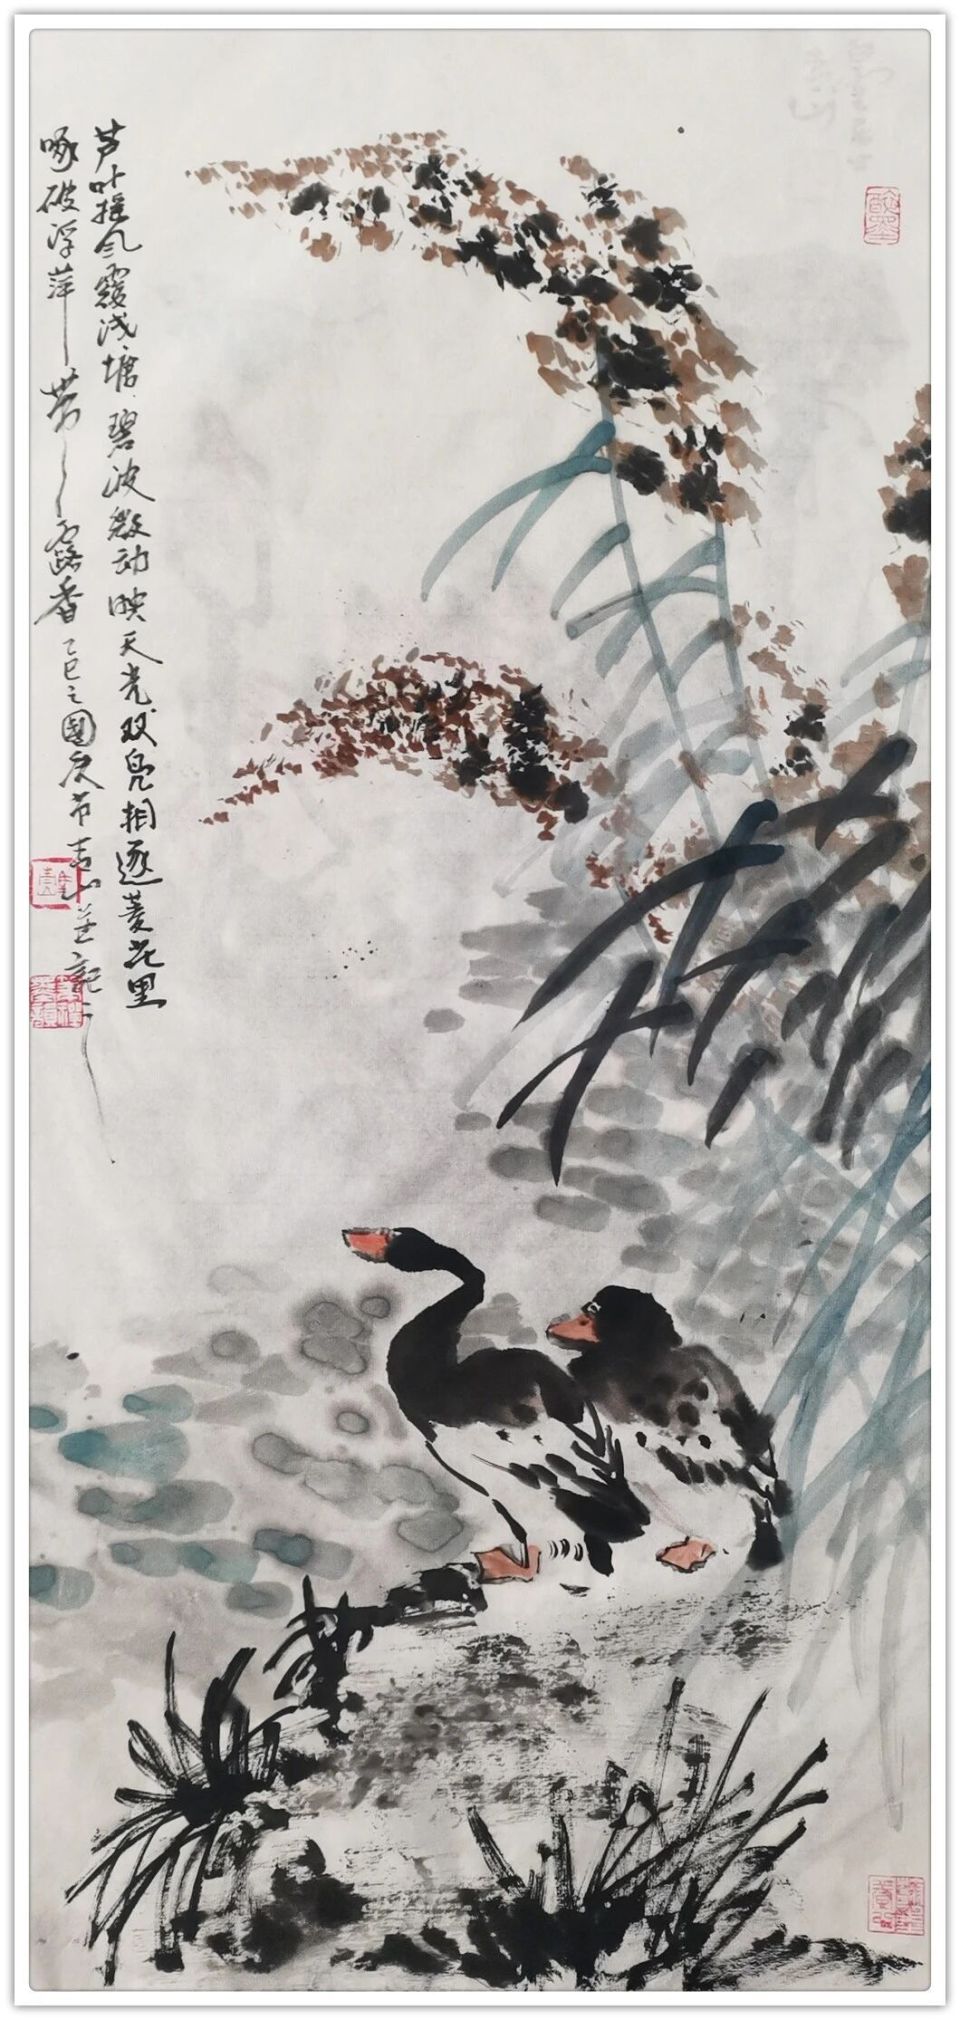 醉墨
芦叶摇风覆浅塘碧波微动映天光双凫相逐菱花里
啄破浮萍带露香乙巳之國庆节吉山並記